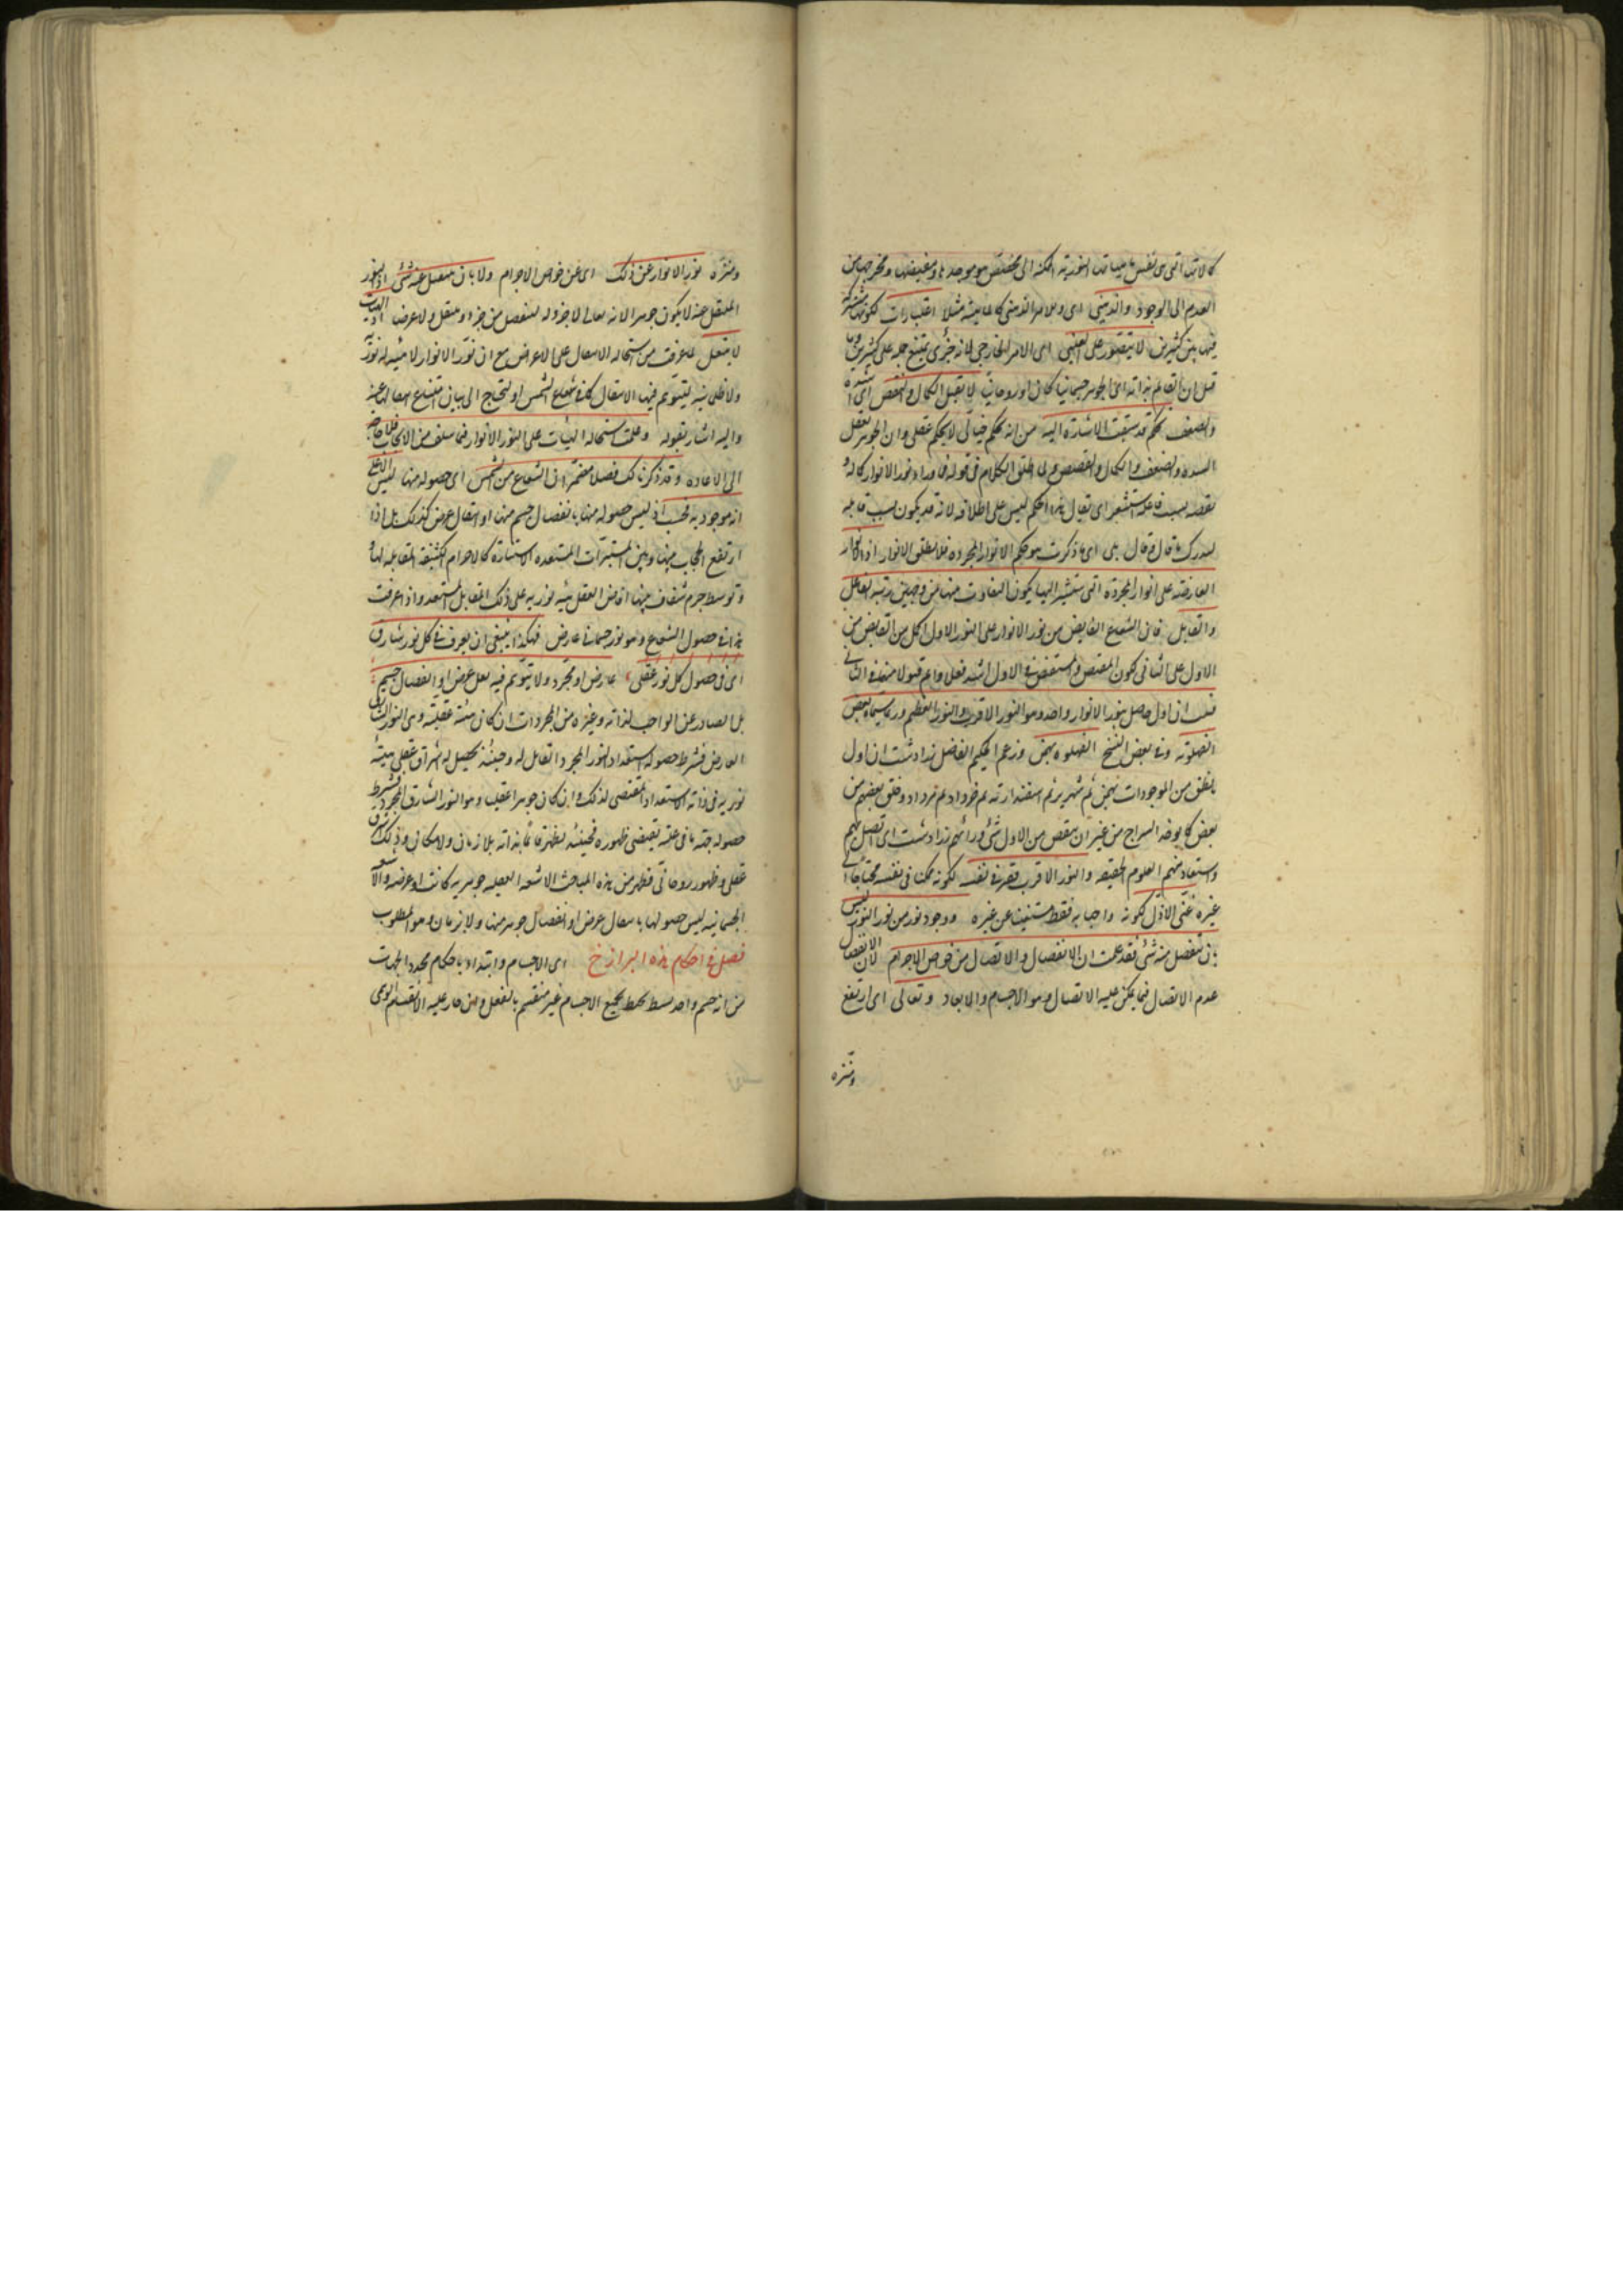 العدم الى الوجود والذهنى اى وللامر الذهنى كالماهية مثلا اعتبارات لكونها مشتركة
فيها بين كثيرين لا يتصور على العينى اى الامر الخارجى لانه جزئى يمتنع حمله على كثيرين وما
قيل ان القائم بذاته اى الجوهر جسمانيا كان او روحانيا لا يقبل الكمال والنقص اى الشدة
والضعف تحكم قد سبقت الاشارة اليه من انه تحكم خيالى لا تحكم عقلى وان الجوهر يقبل
الشدة والضعف والكمال والنقص ولما اطلق الكلام فى قوله فما وراء نور الانوار كماله و
نقصه بسبب فاعله استشعر اى يقال هذا الحكم ليس على اطلاقه لانه قد يكون بسبب قابله
العارضة على انوار المجردة التى ستشير اليها يكون التفاوت منها من وجهين رتبة الفاعل
والقابل فان الشعاع الفايض من نور الانوار على النور الاول اكمل من الفايض من
الاول على الثانى لكون
فثبت ان اول حاصل بنور الانوار واحد وهو النور الاقرب والنور العظيم وربما سماه بعض
الفهلوية وفى بعض النسخ الفهلوة بهمن وزعم الحكيم الفاضل زرادشت ان اول
ما خلق من الموجودات بهمن ثم شهرير ثم اسفندارمذ ثم خرداد ثم مرداد وخلق بعضهم من
بعض كما يوخذ السراج من غير ان ينقص من الاول شئ ورائهم زرادشت اى اتصل بهم
واستفاد منهم العلوم الحقيقية والنور الاقرب فقير فى نفسه لكونه ممكنا فى نفسه محتاجا الى
غيره غنى الاول لكونه واجبا به فقط مستغنيا عن غيره ووجود نور من نور النور ليس
بان ينفصل منه شئ فقد علمت ان الانفصال والاتصال من خواص الاجرام لان الانفصال
عدم الاتصال فيما يمكن عليه الاتصال وهو الاجسام والابعاد وتعالى اى ارتفع
وتنزه
وتنزه نور الانوار عن ذلك اى عن خواص الاجرام ولا بان ينتقل عنه شئ اذ النور
المنتقل عنه لا يكون جوهرا لانه تعالى لا جزء له لينفصل منه جزء وينتقل ولا عرضا اذ الهيآت
لا تنتقل لما عرفت من استحالة الانتقال على الاعراض مع ان نور الانوار لا هيئة له نورية
ولا ظلمانية ليتوهم فيها الانتقال كما فى شعاع الشمس او يحتاج الى بيان امتناع انتقالها عنه
واليه اشار بقوله وعلمت استحالة الهيآت على النور الانوار فيما سلف من الابحاث فلا حاجة
الى الاعادة وقد ذكرنا لك فصلا متضمنا ان الشعاع من الشمس اى حصوله منها ليس الا على
انه موجود به فحسب اذ ليس حصوله منها بانفصال جسم منها او انتقال عرض كذلك بل اذا
ارتفع الحجاب بينها وبين المستنيرات المستعدة الاستنارة كالاجرام الكثيفة المقابلة لها و
وتوسط جرم شفاف بينها افاض العقل هيئة نورية على ذلك المقابل المستعد واذا عرفت
هذا فى حصول الشعاع وهو نور جسمانى عارض فهكذا ينبغى ان يعرف فى كل نور شارق
اى فى حصول كل نور عقلى عارض او مجرد ولا يتوهم فيه نقل عرض او انفصال جسم
بل الصادر عن الواجب لذاته وغيره من المجردات ان كانت هيئة عقلية وهى النور
العارض فشرط حصوله استعداد النور المجرد القابل له وحينئذ يحصل له اشراق عقلى هيئة
نورية فى ذاته كالاستعداد المقتضى لذلك وان كان جوهرا عقليا وهو النور الشارق المجرد فشرط
حصوله جهة ما فى علته يقتضى ظهوره فحينئذ يظهر قائما بذاته بلا زمان ولا مكان وذلك شروق
عقلى وظهور روحانى فظهر من هذه المباحث الاشعة العقلية جوهرية كانت او عرضية والاشعة
الجسمانية ليس حصولها بانتقال عرض او انفصال جوهر منها ولا بزمان وهو المطلوب
فصل فى احكام هذه البرازخ اى الاجسام وابتداء باحكام محدد الجهات
من انه جسم واحد بسيط محيط بجميع الاجسام غير منقسم بالفعل